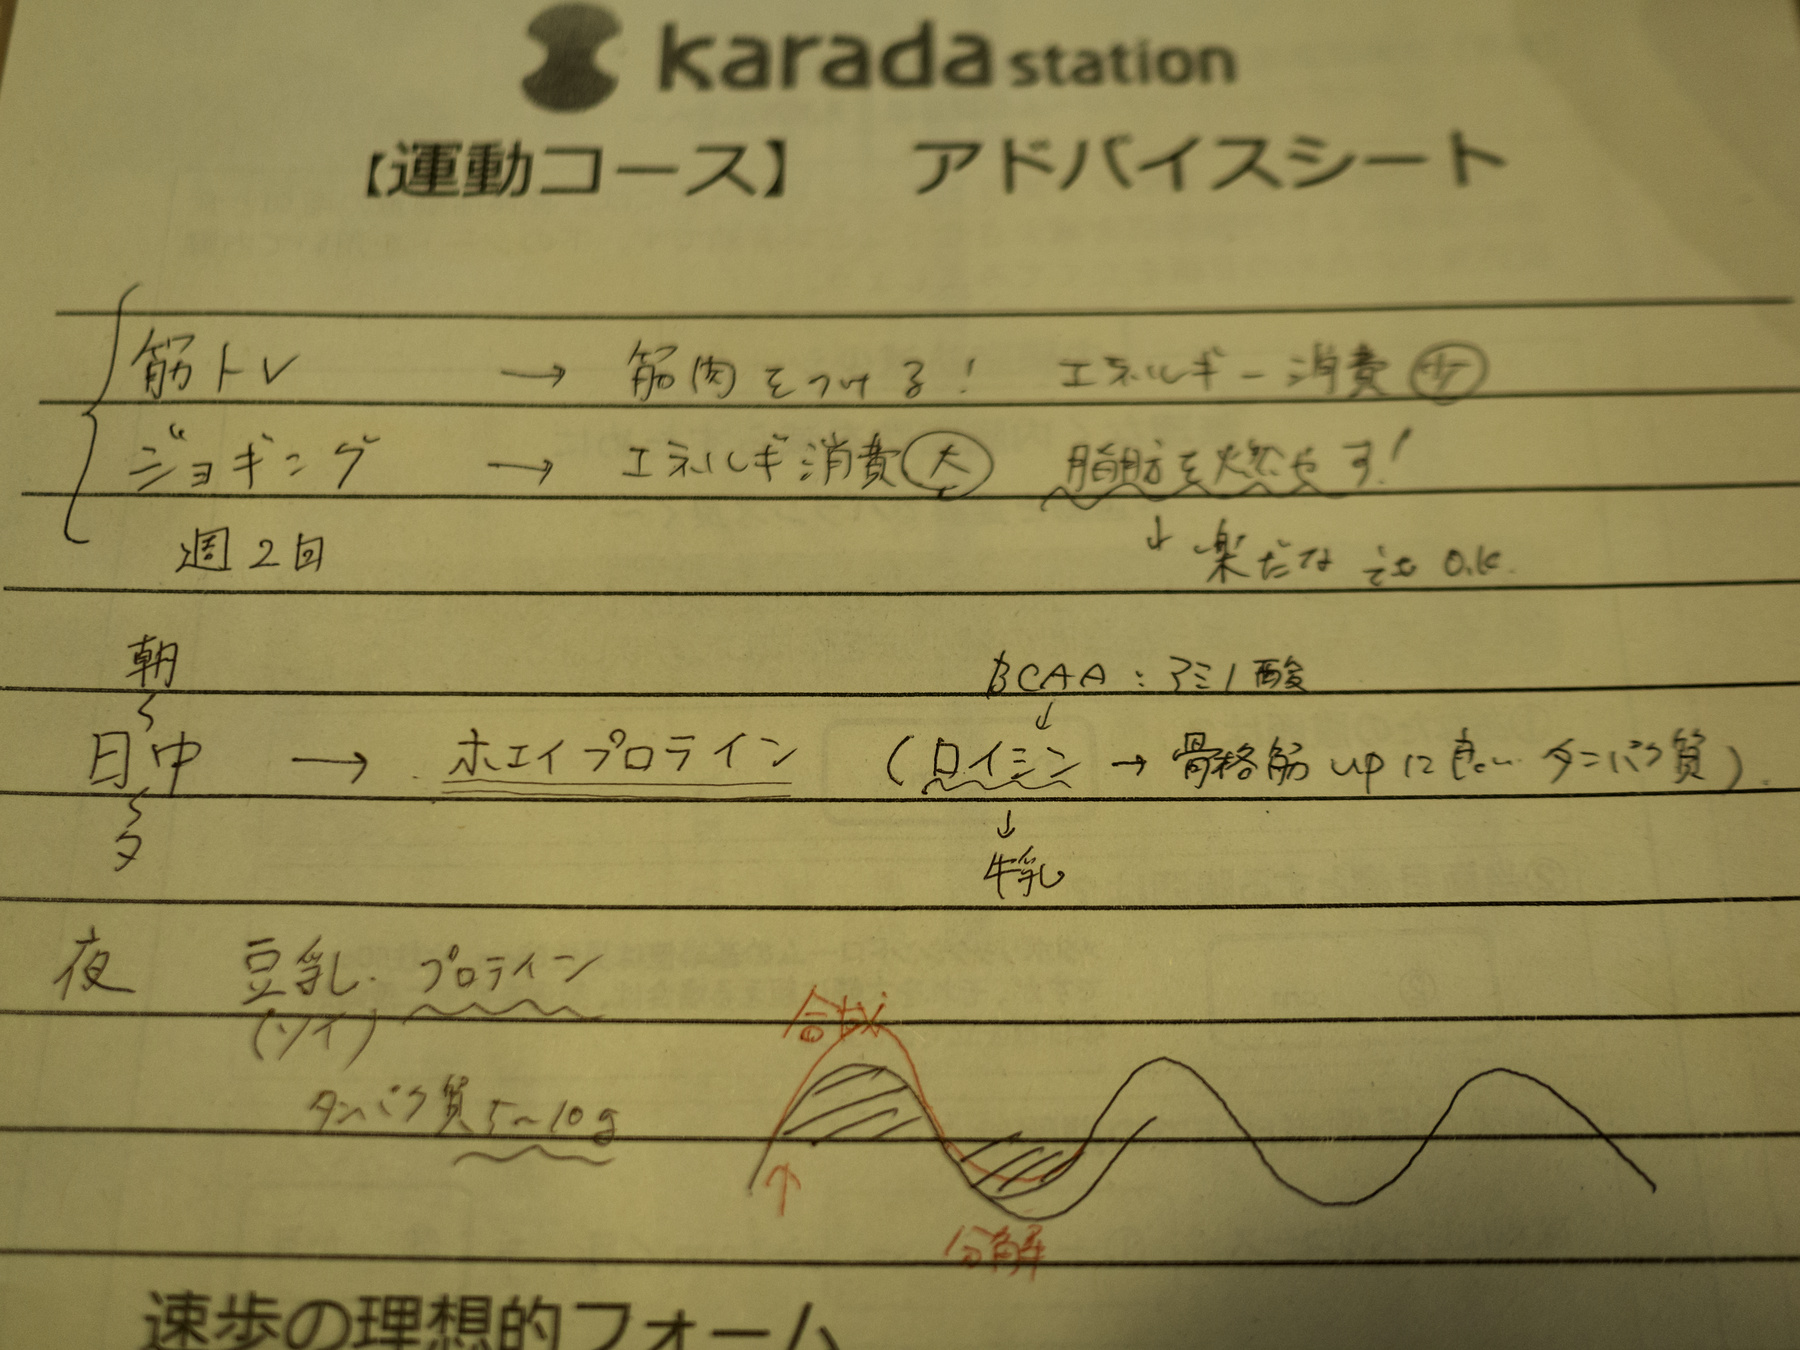 karada station
【運動コース】 アドバイスシート
筋トレ → 筋肉をつける! エネルギー消費 少
ジョギング → エネルギ消費 大 脂肪を燃やす!
週2回 ↓ 楽だな でも O.K.
朝
BCAA:アミノ酸
↓
日中 → ホエイプロテイン (ロイシン → 骨格筋 upに良い タンパク質).
↓
夕 牛乳
夜 豆乳. プロテイン
(ソイ)
合成
タンパク質 5~10g
↑
分解
速歩の理想的フォーム